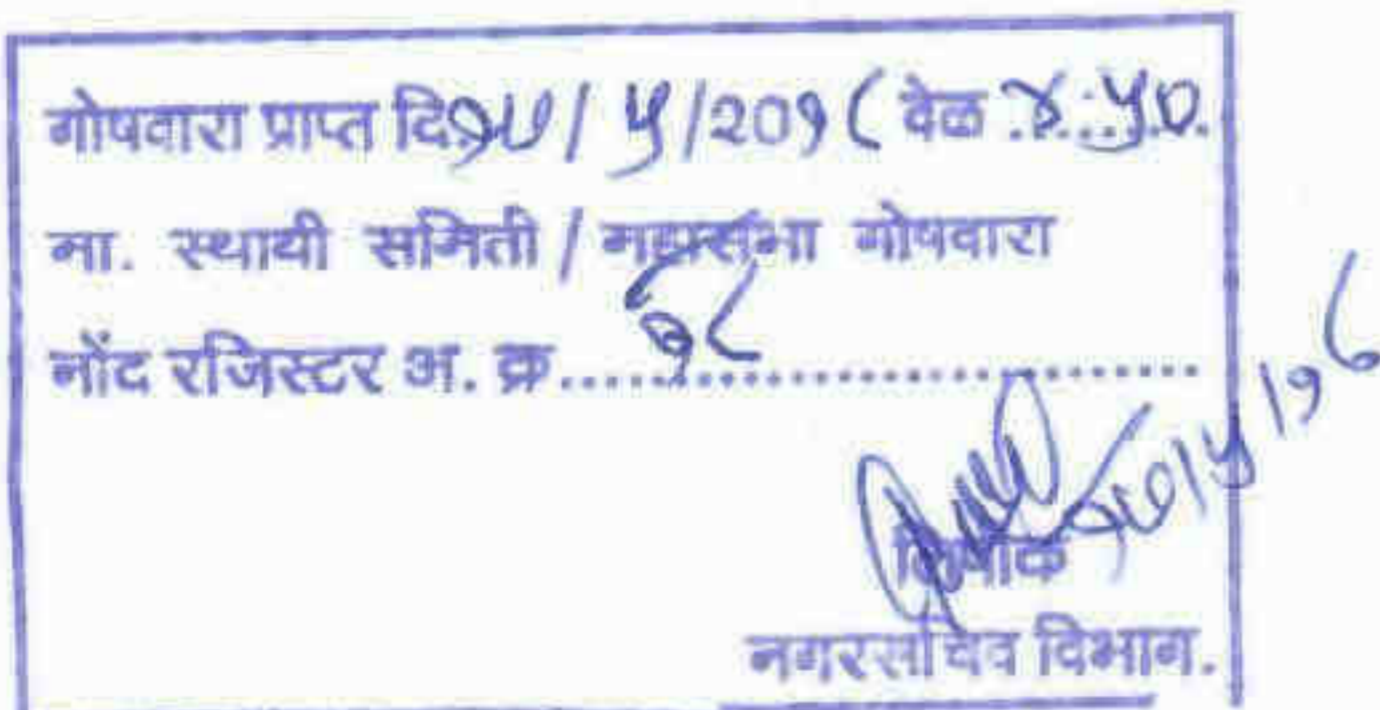 गोषवारा प्राप्त दि.१७/ ५/२०१८ वेळ ४:५०
ना. स्थायी समिती / महासभा गोषवारा
नोंद रजिस्टर अ. क्र......................
लिपीक
नगरसचिव विभाग.